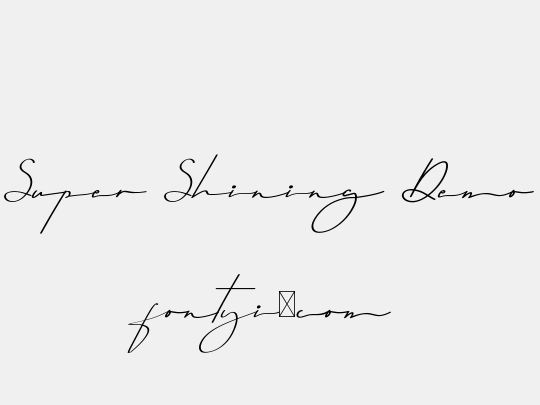 Super Shining Demo
fontyi☒com